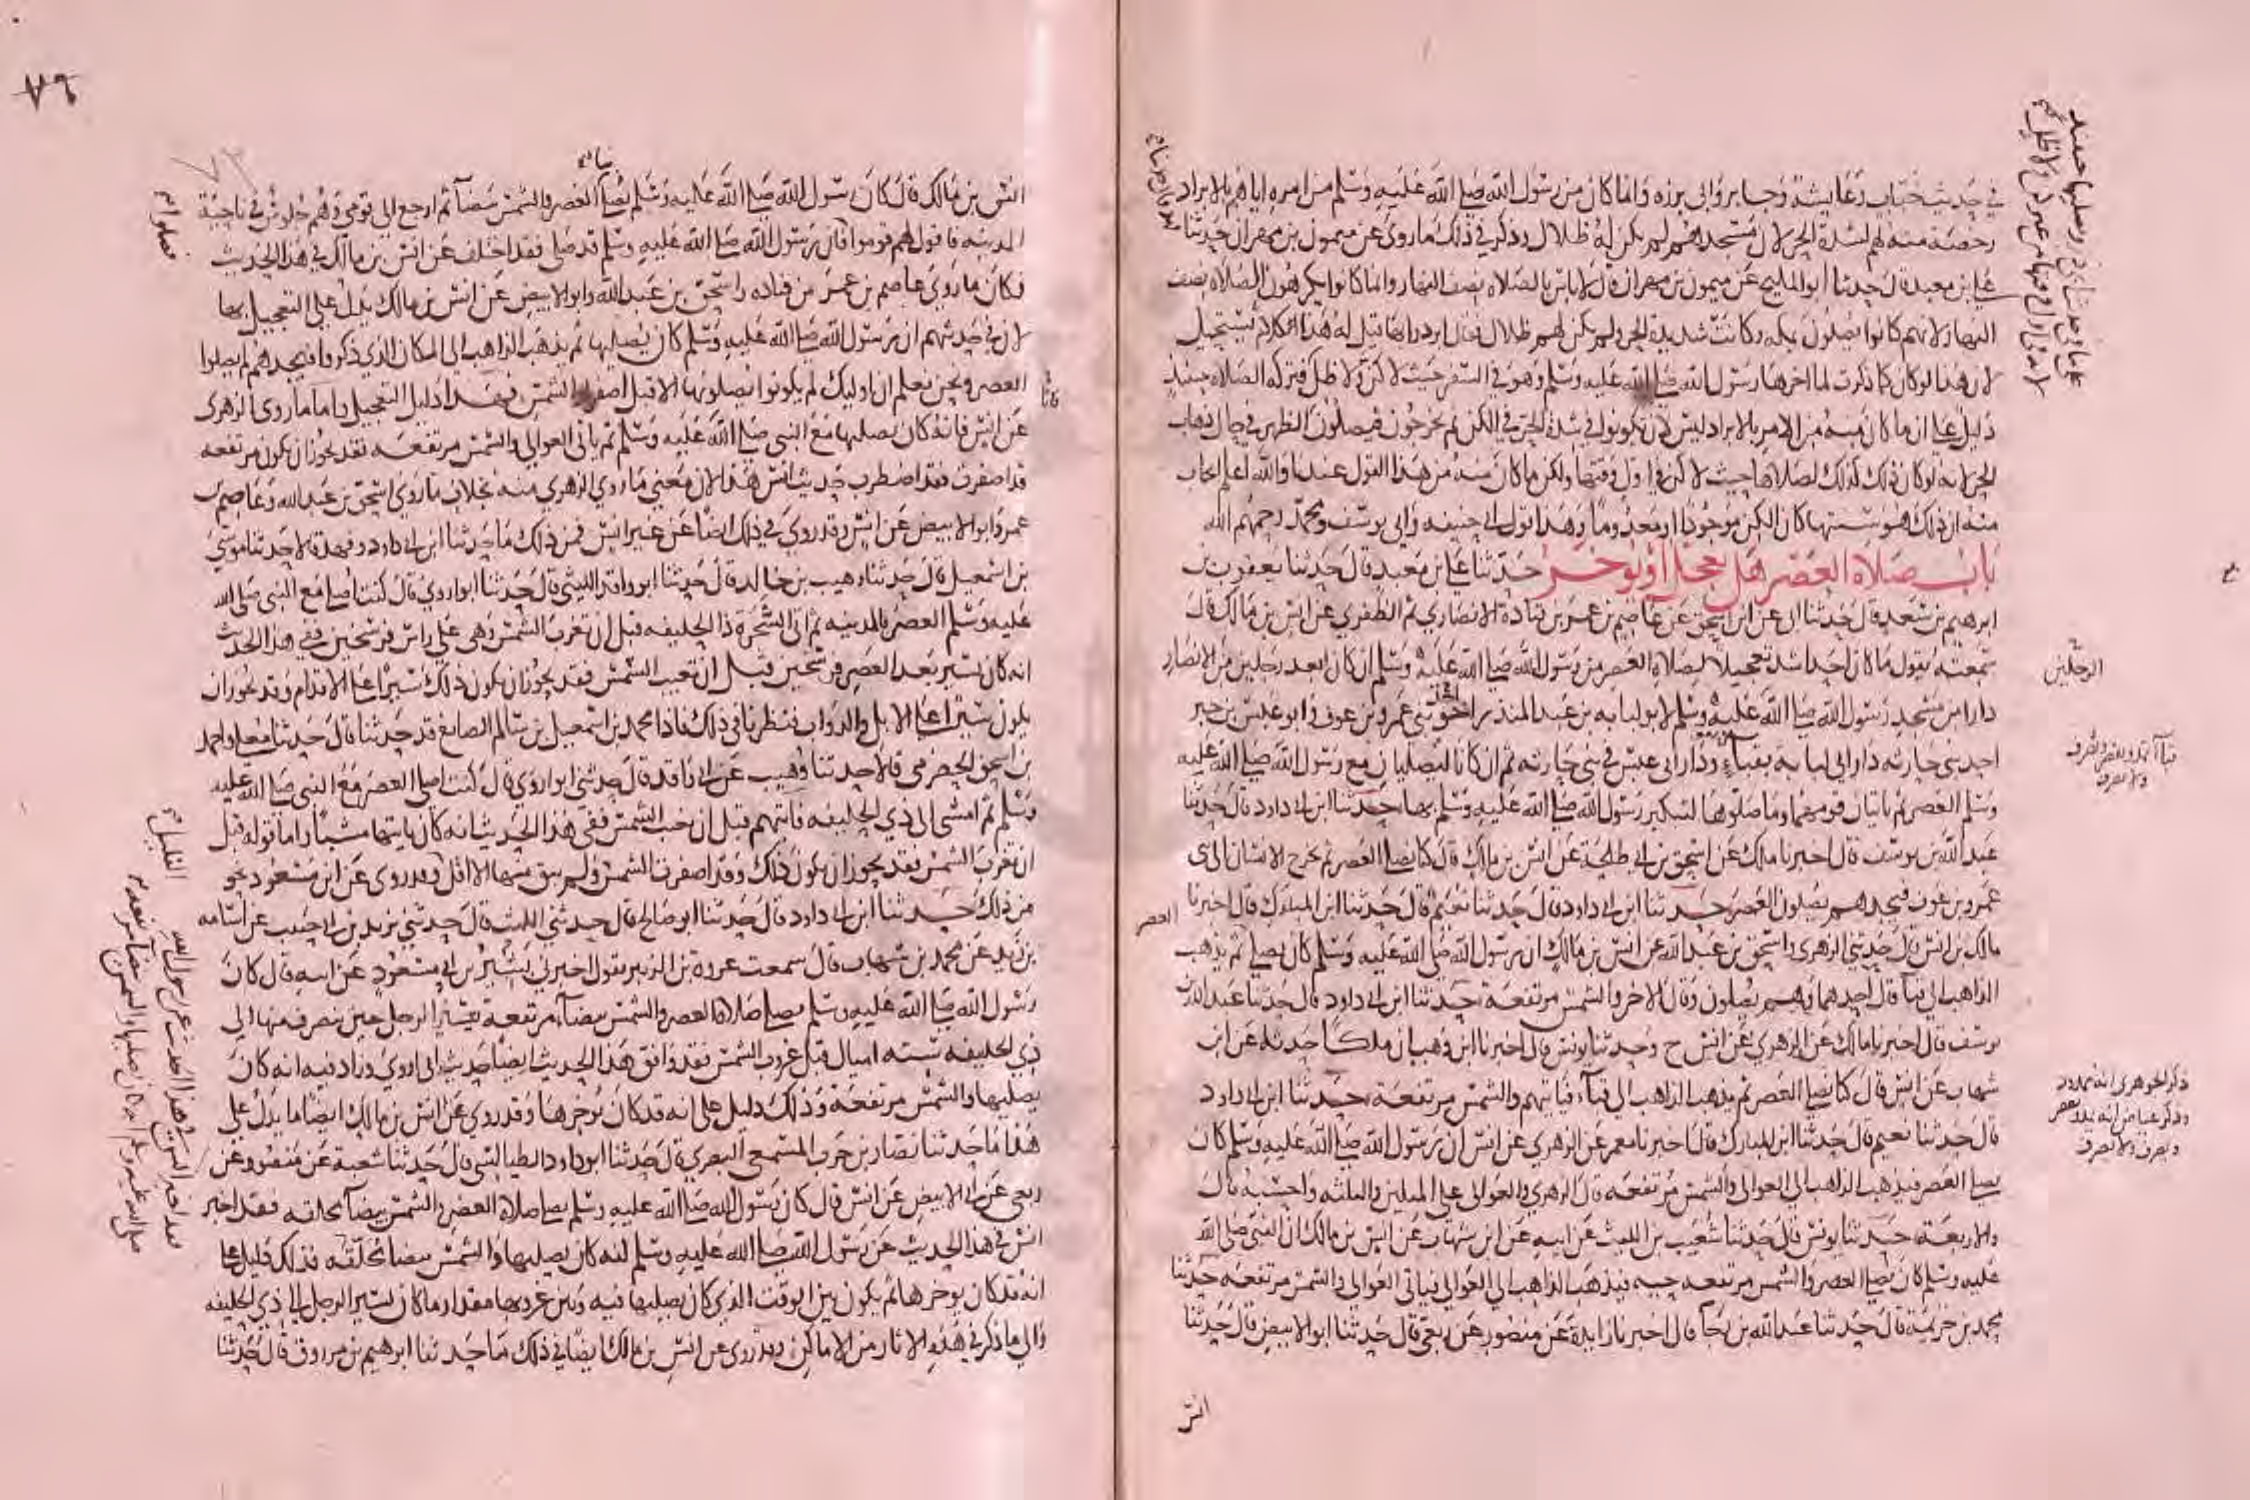 في حديث خباب وعايشة وجابر وابي برزه وانما كان من رسول الله صلى الله عليه وسلم من امره اياهم بالابراد
رخصة منه لهم لشدة الحر لان مسجدهم لم يكن له ظلال وذكر في ذلك ما روي عن ميمون بن مهران حدثنا
علي بن معبد قال حدثنا ابو المليح عن ميمون بن مهران قال لا باس بالصلاه نصف النهار وانما كانوا يكرهون الصلاه نصف
النهار لانهم كانوا يصلون بمكه وكانت شديدة الحر ولم يكن لهم ظلال فقال ابردوا بها قيل له هذا الكلام يستحيل
لان هذا لو كان كما ذكرت لما اخرها رسول الله صلى الله عليه وسلم وهو في السفر حيث لا كن ولا ظل فتركه الصلاه حينئذ
دليل على ان ما كان منه من الامر بالابراد ليس لان يكونوا في شدة الحر في الكن ثم يخرجون فيصلون الظهر في حال ذهاب
الحر لانه لو كان ذلك كذلك لصلاها حيث لا كن في اول وقتها ولكن ما كان منه من هذا القول عندنا والله اعلم ايجاب
منه ان ذلك هو سنتها كان الكن موجودا او معدوما وهذا قول ابي حنيفه وابي يوسف ومحمد رحمهم الله
باب صلاه العصر هل تعجل او توخر حدثنا علي بن معبد قال حدثنا يعقوب بن
ابرهيم بن سعد قال حدثنا ابي عن ابن اسحق عن عاصم بن عمر بن قتادة الانصاري ثم الظفري عن انس بن مالك قال
سمعته يقول ما كان احد اشد تعجيلا لصلاه العصر من رسول الله صلى الله عليه وسلم ان كان ابعد رجلين من الانصار
دارا من مسجد رسول الله صلى الله عليه وسلم لابو لبابه بن عبد المنذر اخو بني عمرو بن عوف وابو عبس بن جبر
احد بني حارثه دار ابي لبابه بقباء ودار ابي عبس في بني حارثه ثم ان كانا ليصليان مع رسول الله صلى الله عليه
وسلم العصر ثم ياتيان قومهما وما صلوها لتبكير رسول الله صلى الله عليه وسلم بها حدثنا ابن ابي داود قال حدثنا
عبد الله بن يوسف قال اخبرنا ملك عن اسحق بن ابي طلحة عن انس بن مالك قال كنا نصلي العصر ثم يخرج الانسان الى بني
عمرو بن عوف فيجدهم يصلون العصر حدثنا ابن ابي داود قال حدثنا نعيم قال حدثنا ابن المبارك قال اخبرنا
مالك بن انس قال حدثني الزهري واسحق بن عبد الله عن انس بن مالك ان رسول الله صلى الله عليه وسلم كان يصلي ثم يذهب
الذاهب الى قبآ قال احدهما وهم يصلون وقال الاخر والشمس مرتفعة حدثنا ابن ابي داود قال حدثنا عبد الله بن
يوسف قال اخبرنا مالك عن الزهري عن انس ح وحدثنا يونس قال اخبرنا ابن وهب ان ملكا حدثه عن ابن
شهاب عن انس قال كنا نصلي العصر ثم يذهب الذاهب الى قبآء فياتيهم والشمس مرتفعة حدثنا ابن ابي داود
قال حدثنا نعيم قال حدثنا ابن المبارك قال اخبرنا معمر عن الزهري عن انس ان رسول الله صلى الله عليه وسلم كان
يصلي العصر فيذهب الذاهب الى العوالي والشمس مرتفعه قال الزهري والعوالي على الميلين والثلثه واحسبه قال
والاربعة حدثنا يونس قال حدثنا شعيب بن الليث عن ابيه عن ابن شهاب عن انس بن مالك ان النبي صلى الله
عليه وسلم كان يصلي العصر والشمس مرتفعه حيه فيذهب الذاهب الى العوالي فياتي العوالي والشمس مرتفعه حدثنا
محمد بن خزيمة قال حدثنا عبد الله بن رجآ قال اخبرنا زايدة عن منصور عن ربعي قال حدثنا ابو الابيض قال حدثنا
انس
الرجلين
العصر
ذكر الجوهري انه ممدود
وذكر عياض انه يمد ويقصر
ويصرف ولا يصرف
٧٩
انس بن مالك قال كان رسول الله صلى الله عليه وسلم يصلي بنا العصر والشمس بيضآ ثم ارجع الى قومي وهم جلوس في ناحية
المدينه فاقول لهم قوموا فان رسول الله صلى الله عليه وسلم قد صلى فقد اختلف عن انس بن مالك في هذا الحديث
فكان ما روي عاصم بن عمر بن قتاده واسحق بن عبد الله وابو الابيض عن انس بن مالك يدل على التعجيل بها
لان في حديثهم ان رسول الله صلى الله عليه وسلم كان يصليها ثم يذهب الذاهب الى المكان الذي ذكروا فيجدهم لم يصلوا
العصر ونحن نعلم ان اوليك لم يكونوا يصلونها الا قبل اصفرار الشمس فهذا دليل التعجيل واما ما روى الزهري
عن انس فانه كان يصليها مع النبي صلى الله عليه وسلم ثم ياتي العوالي والشمس مرتفعه فقد يجوز ان يكون مرتفعه
قد اصفرت فقد اضطرب حديث انس هذا لان معنى ما روي الزهري منه بخلاف ما روي اسحق بن عبد الله وعاصم بن
عمر وابو الابيض عن انس وقد روي في ذلك ايضا عن غير انس فمن ذلك ما حدثنا ابن ابي داود وفهد قالا حدثنا موسى
بن اسمعيل قال حدثنا وهيب بن خالد قال حدثنا ابو واقد الليثي قال حدثنا ابو اروي قال كنت اصلي مع النبي صلى الله
عليه وسلم العصر بالمدينه ثم اتي الشجرة ذا الحليفه قبل ان تغرب الشمس وهي على راس فرسخين ففي هذا الحديث
انه كان يسير بعد العصر فرسخين قبل ان تغيب الشمس فقد يجوز ان يكون ذلك سيرا على الاقدام وقد يجوز ان
يكون سيرا على الابل والدواب فنظرنا في ذلك فاذا محمد بن اسمعيل بن سالم الصايغ قد حدثنا قال حدثنا معلى واحمد
بن اسحق الحضرمي قالا حدثنا وهيب عن ابي واقد قال حدثني ابو اروي قال كنت اصلي العصر مع النبي صلى الله عليه
وسلم ثم امشي الى ذي الحليفه فاتيهم قبل ان تغيب الشمس ففي هذا الحديث انه كان ياتيها مشيا واما قوله قبل
ان تغرب الشمس فقد يجوز ان يكون ذلك وقد اصفرت الشمس ولم يبق منها الا اقل وقد روي عن ابن مسعود نحو
من ذلك حدثنا ابن ابي داود قال حدثنا ابو صالح قال حدثني الليث قال حدثني يزيد بن ابي حبيب عن اسامه
بن زيد عن محمد بن شهاب قال سمعت عروة بن الزبير يقول اخبرني بشير بن ابي مسعود عن ابيه قال كان
رسول الله صلى الله عليه وسلم يصلي صلاة العصر والشمس بيضآء مرتفعة يسير الرجل حين ينصرف منها الى
ذي الحليفه سته اميال قبل غروب الشمس فقد وافق هذا الحديث ايضا حديث ابي اروي وزاد فيه انه كان
يصليها والشمس مرتفعة وذلك دليل على انه قد كان يوخرها وقد روي عن انس بن مالك ايضا ما يدل على
هذا ما حدثنا نصار بن حرب المسمعي البصري قال حدثنا ابو داود الطيالسي قال حدثنا شعبة عن منصور عن
ربعي عن ابي الابيض عن انس قال كان رسول الله صلى الله عليه وسلم يصلي صلاة العصر والشمس بيضآ محلقه فقد اخبر
انس في هذا الحديث عن رسول الله صلى الله عليه وسلم انه كان يصليها والشمس بيضا محلقه فذلك دليل على
انه قد كان يوخرها ثم يكون بين الوقت الذي كان يصليها فيه وبين غروبها مقدار ما كان يسير الرجل الى ذي الحليفه
والى ما ذكر في هذه الاثار من الاماكن وقد روي عن انس بن مالك ايضا في ذلك ما حدثنا ابرهيم بن مرزوق قال حدثنا
القليل